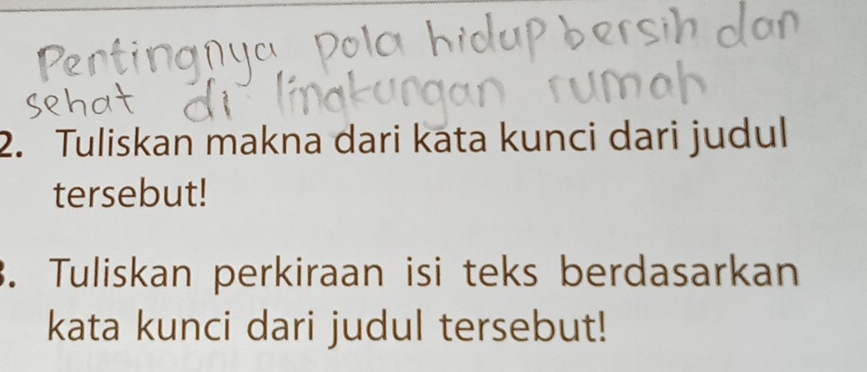 Pentingnya pola hidup bersih dan
sehat di lingkungan rumah
2. Tuliskan makna dari kata kunci dari judul
tersebut!
3. Tuliskan perkiraan isi teks berdasarkan
kata kunci dari judul tersebut!